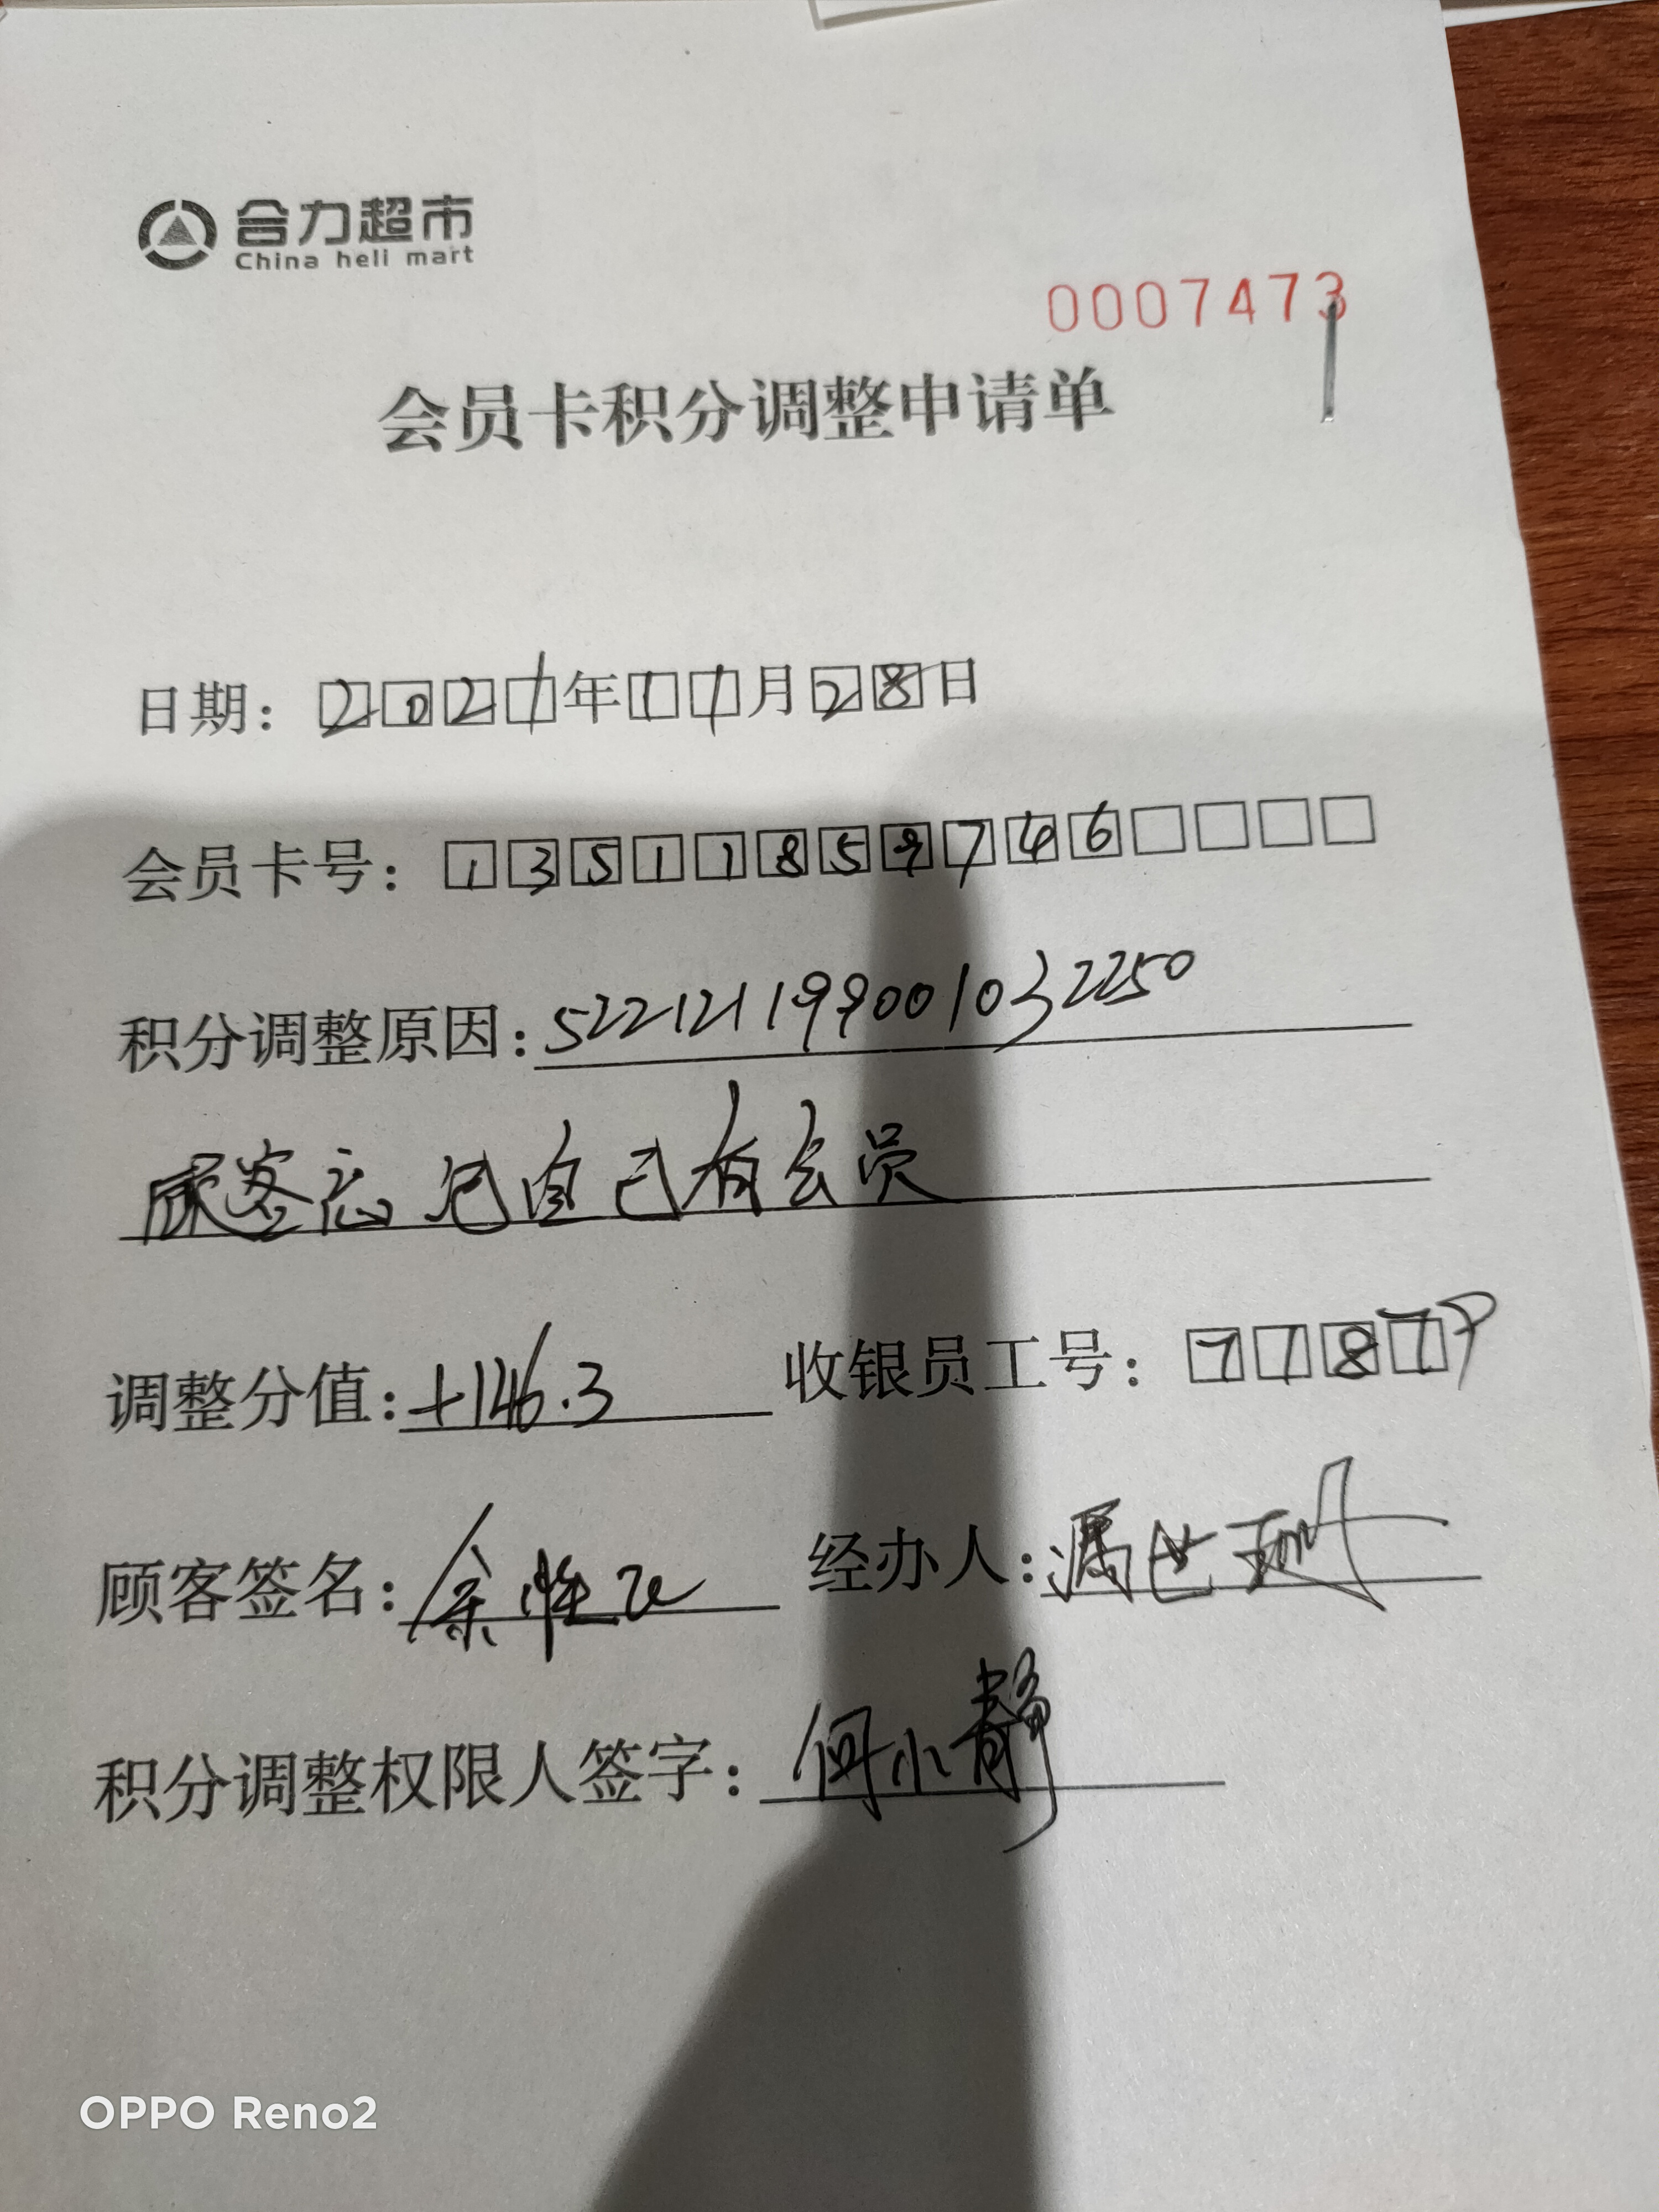 合力超市
China heli mart
0007473
会员卡积分调整申请单
日期：2021年11月28日
会员卡号：13511859746
积分调整原因：522121199001032250
顾客忘记自己有会员
调整分值：+146.3 收银员工号：7187P
顾客签名：余 经办人：冯世
积分调整权限人签字：何小静
OPPO Reno2